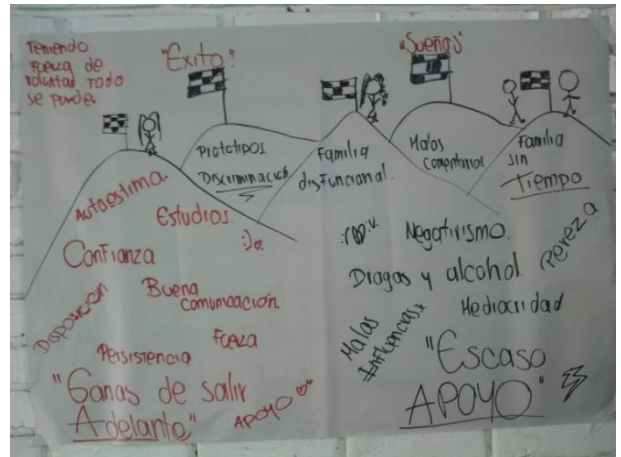 Teniendo
Fuerza de
voluntad TODO
se puede.
"Exito"
"Sueños"
Prototipos
Discriminación
Familia
disfuncional.
Malos
comentarios
Familia
sin
Tiempo
Autoestima.
Estudios.
Confianza
Disposicion
Buena
comunicación
Fuerza
Persistencia
"Ganas de salir
Adelante"
APOYO
Negativismo.
Pereza
Drogas y alcohol.
Malas
Influencias
Mediocridad
"Escaso
APOYO"